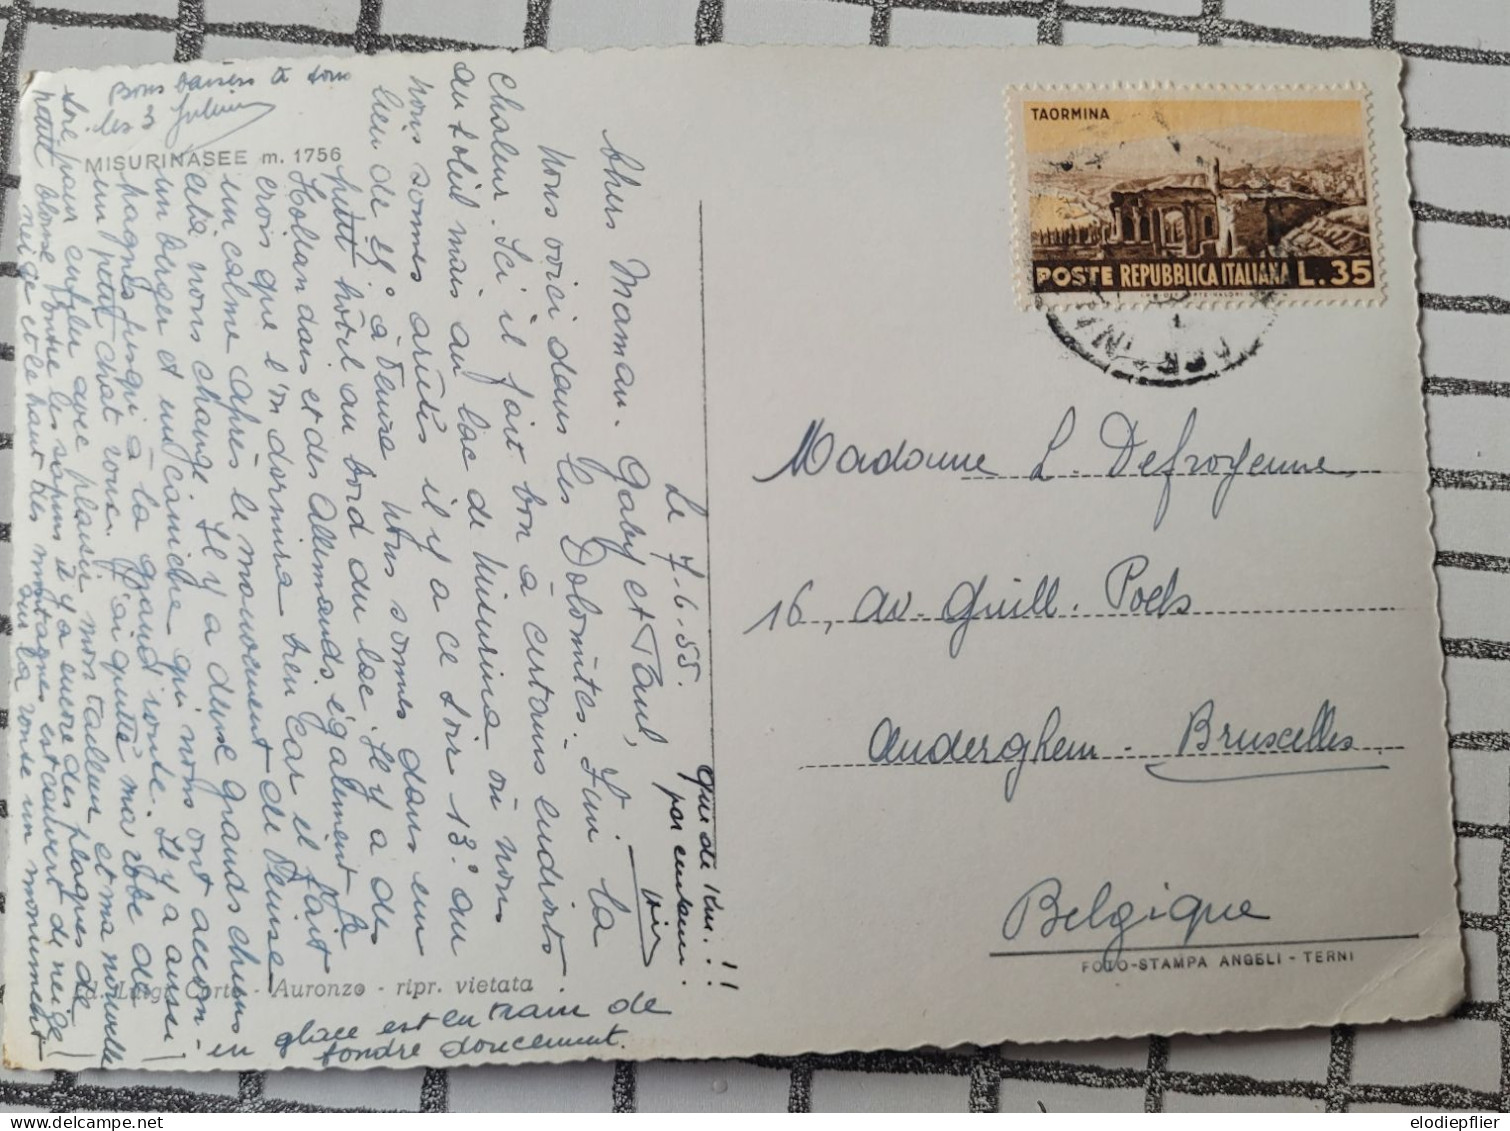 Le 7-6-55.
Chers Maman, Gaby et Paul,
Nous voici dans les Dolomites. Fini la
chaleur. Ici il fait bon à certains endroits
au soleil mais au lac de Misurina où nous
nous sommes arrêtés il y a ce soir 13° au
lieu de 25° à Venise. Nous sommes dans un
petit hôtel au bord du lac. Il y a des
Italiens dans et des Allemands également. Je
crois que l'on dormira bien car il fait
un calme après le mouvement de Venise
cela nous change. Il y a deux grands chiens
un berger et un caniche qui nous ont accom-
pagnés jusqu'à la grand'route. Il y a aussi
un petit chat roux. J'ai quitté ma robe de
soie pour enfiler avec plaisir mon tailleur et ma nouvelle
petite blouse. Contre les sapins il y a encore des plaques de
neige et le haut des montagnes est couvert de neige!
Sur la route un monument
en
glace est en train de
fondre doucement.
Bons baisers à tous
les 3
MISURINASEE m. 1756
- Auronzo - ripr. vietata
TAORMINA
POSTE REPUBBLICA ITALIANA L.35
Madame L. Defroyenne
16, av. Guill. Poels
Auderghem - Bruxelles
Belgique
FOTO-STAMPA ANGELI - TERNI
elodiepflier